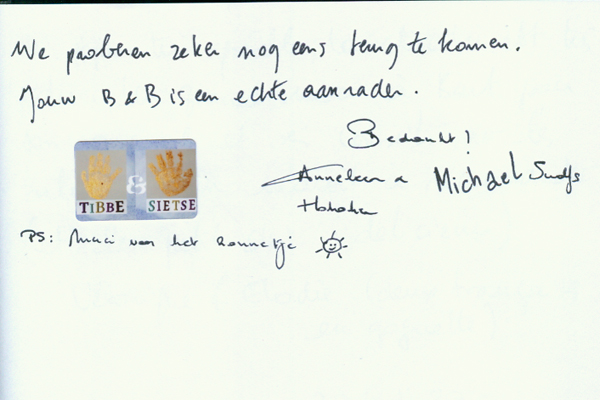 We proberen zeker nog eens terug te komen.
Jouw B & B is een echte aanrader.
Bedankt!
Anneleen & Michael
TIBBE & SIETSE
PS: Merci voor het zonnetje